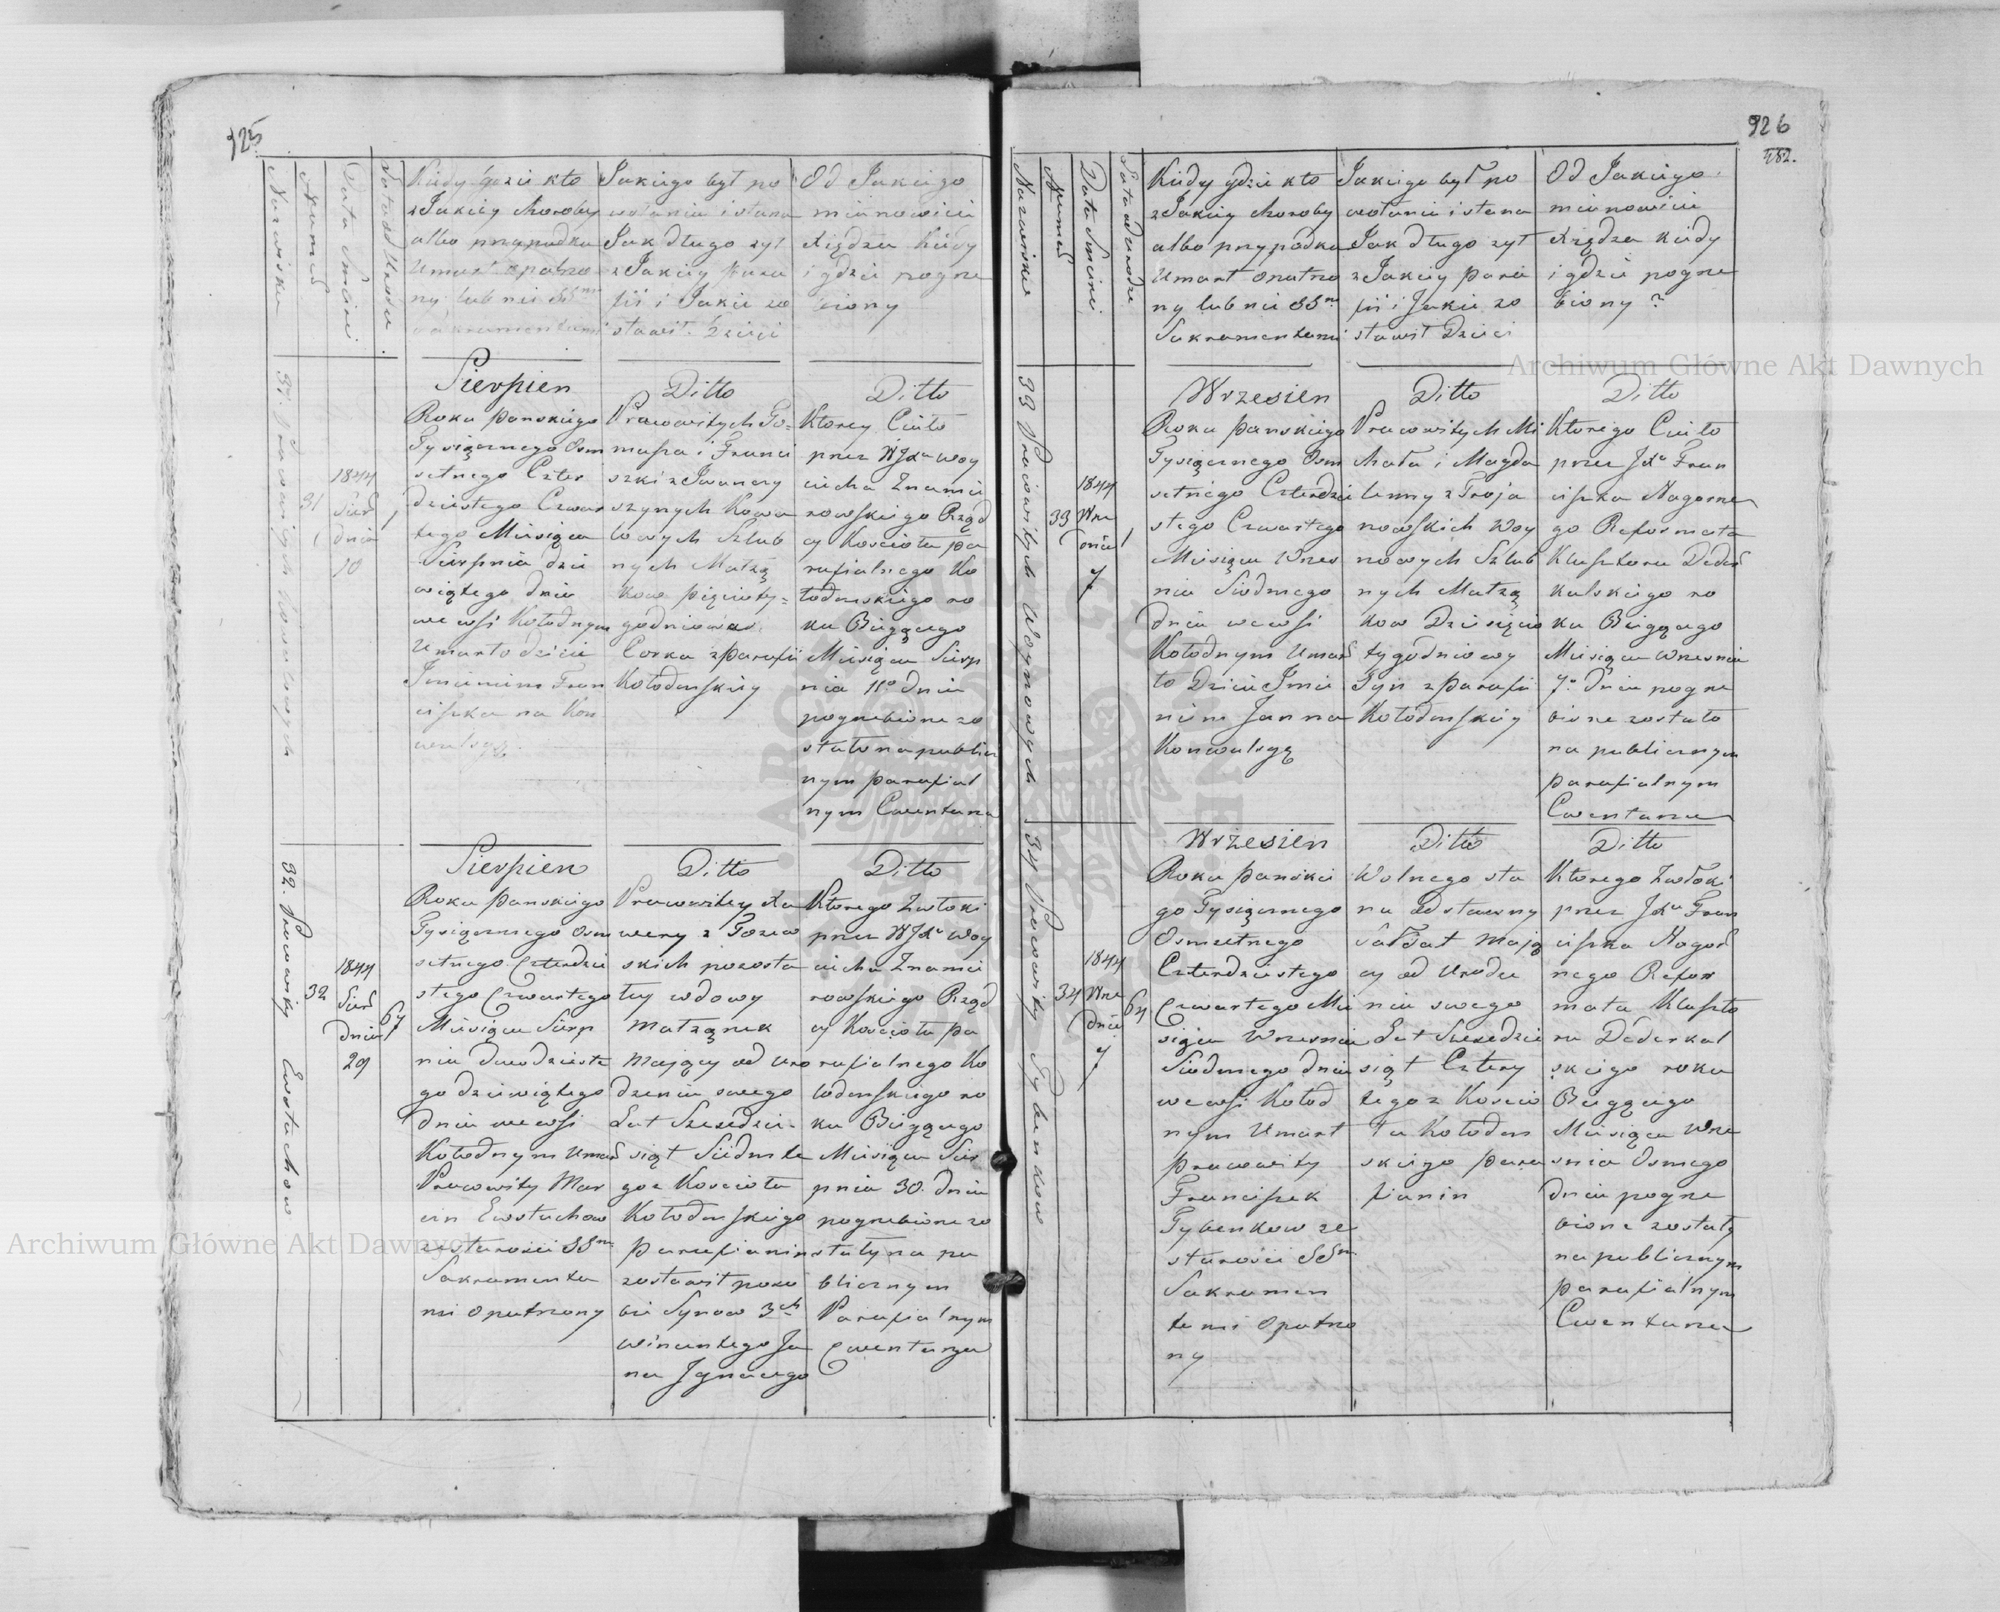 925
Nazwisko
Numer
Data Smierci
Lata od Urodze
Kiedy gdzie kto
z Jakiey choroby
albo przypadku
Umarł opatrzo
ny lub nie SSmi
Sakramentami
Jakiego był po
wołania i stanu
Jak długo żył
z Jakiey Para
fii i Jakie zo
stawił Dzieci
Od Jakiego
mianowicie
Xiędza kiedy
i gdzie pogrze
biony
31. Prawowitych Kowalowych
31
1844
Sier
dnia
10
Sierpien
Roku Panskiego
Tysiącznego Osm
setnego Czter
dziestego Czwar
tego Miesiąca
Sierpnia dzie
wiątego dnia
we wsi Kołodnym
Umarło dziecie
Imieniem Fran
ciszka na Kon
wulsyą.
Ditto
Pracowitych To=
masza i Franci
szki z Iwanczy
szynych Kowa
lowych Szlub
nych Małżą
kow pięcioty=
godniowa
Corka z Parafii
Kołodenskiey
Ditto
Ktorey Ciało
przez WJXa Woy
ciecha Znamie
rowskiego Rząd
cy Kościoła pa
rafialnego Ko
łodenskiego ro
ku Bieżącego
Miesiąca Sierp
nia 11o dnia
pogrzebione zo
stało na publicz
nym parafial
nym Cmentarzu
32. Pracowity Ewstachow
32
1844
Sier
dnia
29
67
Sierpien
Roku Panskiego
Tysiącznego Osm
setnego Czterdzie
stego Czwartego
Miesiąca Sierp
nia dwudzieste
go dziewiątego
dnia we wsi
Kołodnym Umarł
Pracowity Mar
cin Ewstachow
ze starości SSmi
Sakramenta
mi opatrzony
Ditto
Pracowitey Xa
wery z Tozew
skich pozosta
łey wdowy
Małżąnek
Maiący od uro
dzenia swego
Lat Sześdzie=
siąt Siedm te
goż Kościoła
Kołodenskiego
Parafianin
zostawił poso
bie Synow 3ch
Wincentego Ja
na Jgnacego
Ditto
Ktorego Zwłoki
przez WJXa Woy
ciecha Znamie
rowskiego Rząd
cy Kościoła pa
rafialnego Ko
łodenskiego ro
ku Bieżącego
Miesiąca Sier
pnia 30. dnia
pogrzebione zo
stały na pu
blicznym
Parafialnym
Cmentarzu
926
482.
Nazwisko
Numer
Data Smierci
Lata Urodze
Kiedy gdzie kto
z Jakiey choroby
albo przypadku
Umarł opatrzo
ny lub nie SSmi
Sakramentami
Jakiego był po
wołania i stanu
Jak długo żył
z Jakiey para
fii i Jakie zo
stawił Dzieci
Od Jakiego
mianowicie
Xiędza kiedy
i gdzie pogrze
biony?
33 Prawowitych Woynowych
33
1844
Wrze
dnia
7
Wrzesien
Roku Panskiego
Tysiącznego Osm
setnego Czterdzie
stego Czwartego
Miesiąca Wrzes
nia Siodmego
dnia we wsi
Kołodnym Umar
ło Dziecie Imie
niem Jan na
Konwulsyą
Ditto
Pracowitych Mi
chała i Magda
lenny z Troja
nowskich Woy
nowych Szlub
nych Małżą
kow Dziesięcio
tygodniowy
Syn z Parafii
Kołodenskiey
Ditto
Ktorego Ciało
przez JXa Fran
ciszka Nagorne
go Reformata
Klasztoru Deder
kalskiego ro
ku Bieżącego
Miesiąca Wrzesnia
7o dnia pogrze
bione zostało
na publicznym
parafialnym
Cmentarzu
34 Pracowity Tybenkow
34
1844
Wrze
dnia
7
64
Wrzesien
Roku Panskie
go Tysiącznego
Osmsetnego
Czterdziestego
Czwartego Mie
siąca Wrzesnia
Siodmego dnia
we wsi Kołod
nym Umarł
pracowity
Franciszek
Tybenkow ze
starości SSmi
Sakramen
tami Opatrzo
ny
Ditto
Wolnego sta
nu odstawny
Sałdat maią
cy od Urodze
nia swego
Lat Sześdzie
siąt Cztery
tegoż Koscio
ła Kołoden
skiego para
fianin
Ditto
Ktorego Zwłoki
przez JXa Fran
ciszka Nagor
nego Refor
mata Klaszto
ru Dederkal
skiego roku
Bieżącego
Miesiąca Wrze
snia Osmego
dnia pogrze
bione zostały
na publicznym
parafialnym
Cmentarzu
Archiwum Główne Akt Dawnych
Archiwum Główne Akt Dawnych